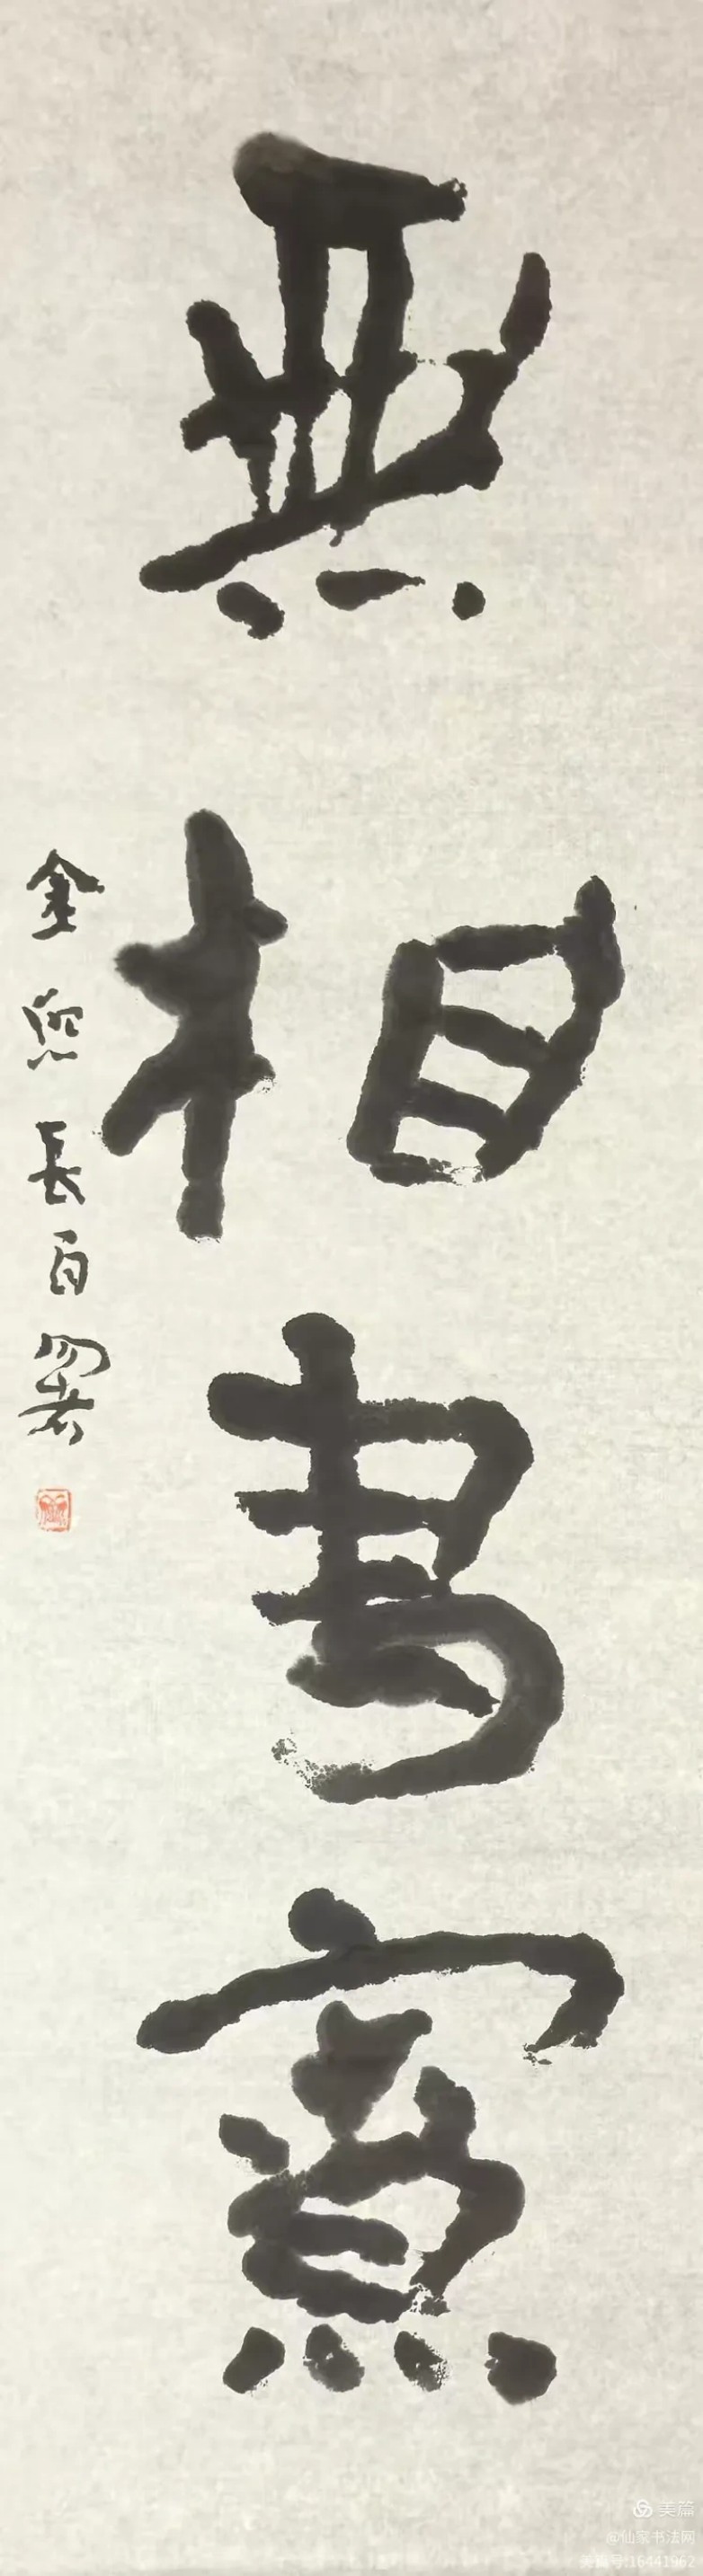 無相書寮
金熙長白
美篇
@仙家书法网
美篇号:16441962